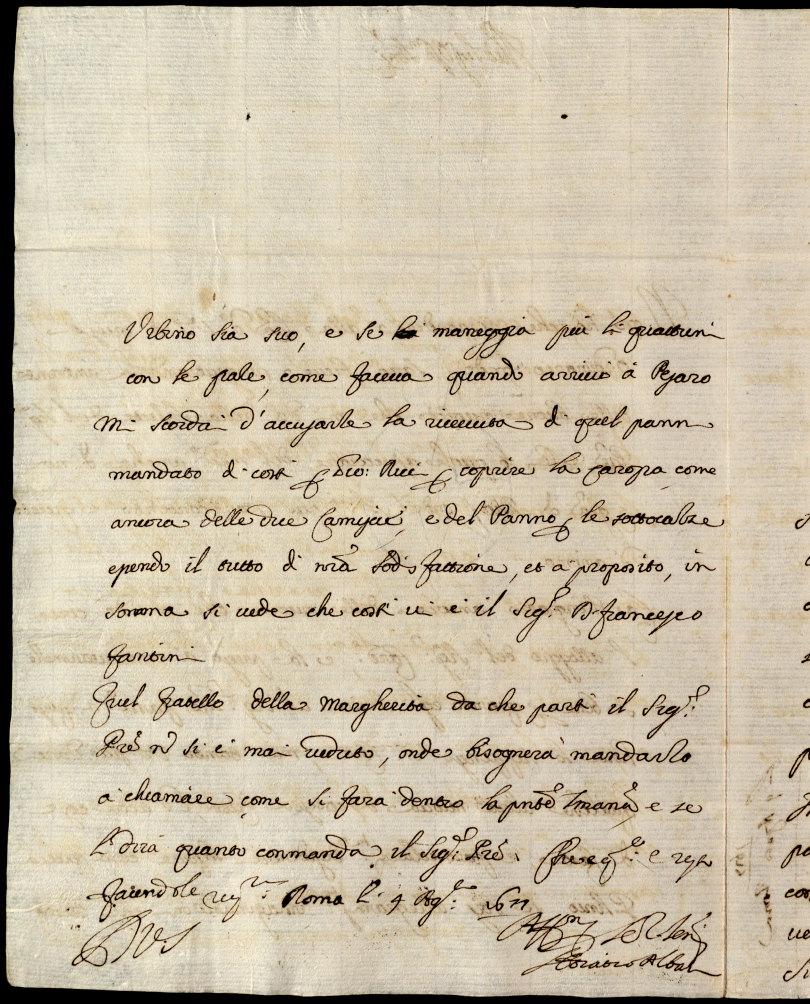 Urbino sia suo, e se maneggia più li quattrini
con le pale, come faceua quando arriuò à Pesaro
Mi scordai d'accusarle la riceuuta di quel pann
mandato di costì coprire la come
ancora delle due Camiscie, e del Panno le sottocalze
essendo il tutto di nrã sodisfattione, et a proposito, in
somma si uede che costì ui è il Sigr. D. Francesco
Fantini
Quel fratello della Margherita da che partì il Sigr.
Prẽ nõ si è mai ueduto, onde bisognerà mandarlo
à chiamare come si farà dentro la pntẽ e se
li dirà quanto commanda il Sigr. Prẽ. e
facendole Roma li 9 Agto.
DVS
Horatio Albani